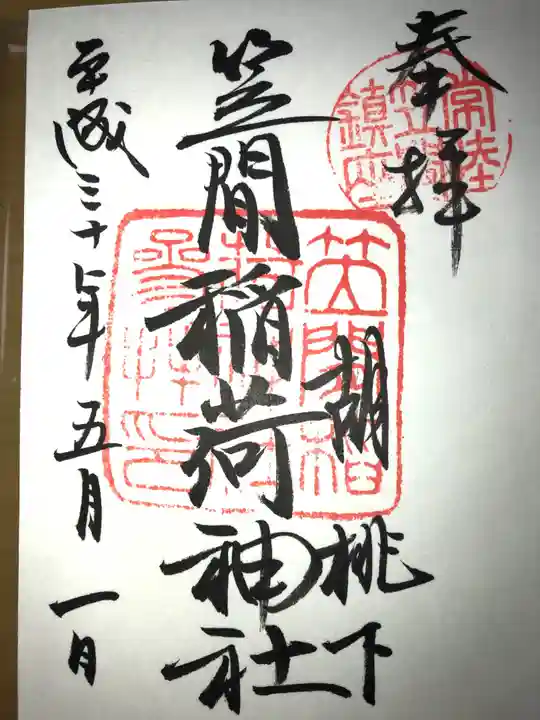 奉拝
胡桃下
笠間稲荷神社
平成三十年五月一日
常陸笠間鎮座
笠間稲